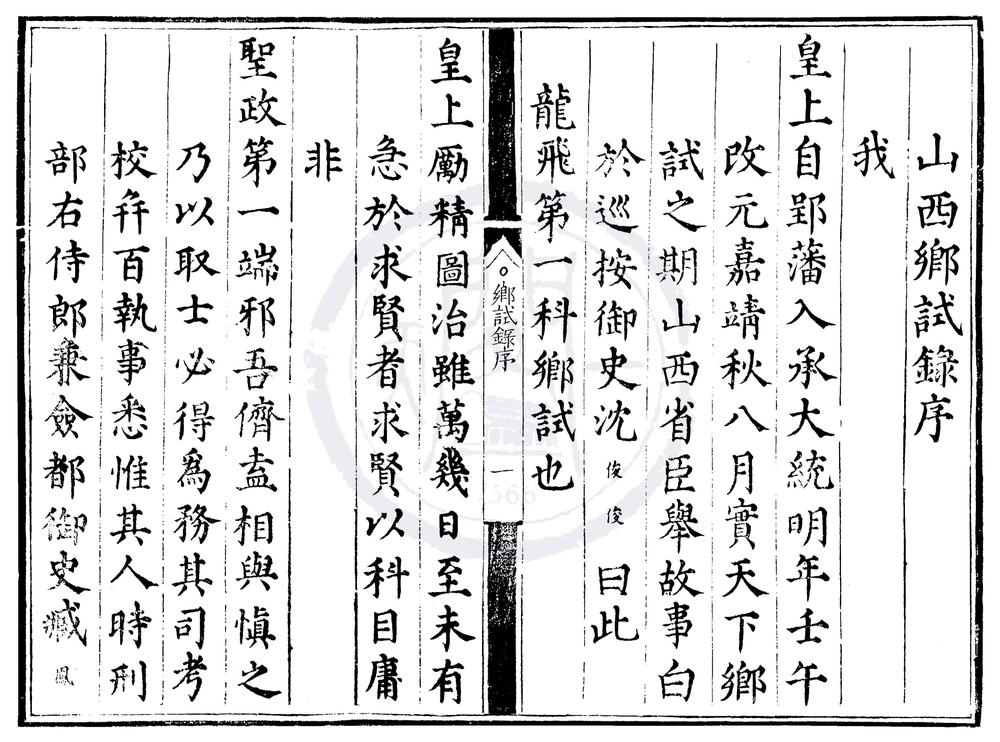 山西鄉試錄序
我
皇上自郢藩入承大統明年壬午
改元嘉靖秋八月實天下鄉
試之期山西省臣舉故事白
於巡按御史沈俊俊曰此
龍飛第一科鄉試也
鄉試錄序
一
皇上勵精圖治雖萬幾日至未有
急於求賢者求賢以科目庸
非
聖政第一端邪吾儕盍相與慎之
乃以取士必得爲務其司考
校幷百執事悉惟其人時刑
部右侍郎兼僉都御史臧鳳